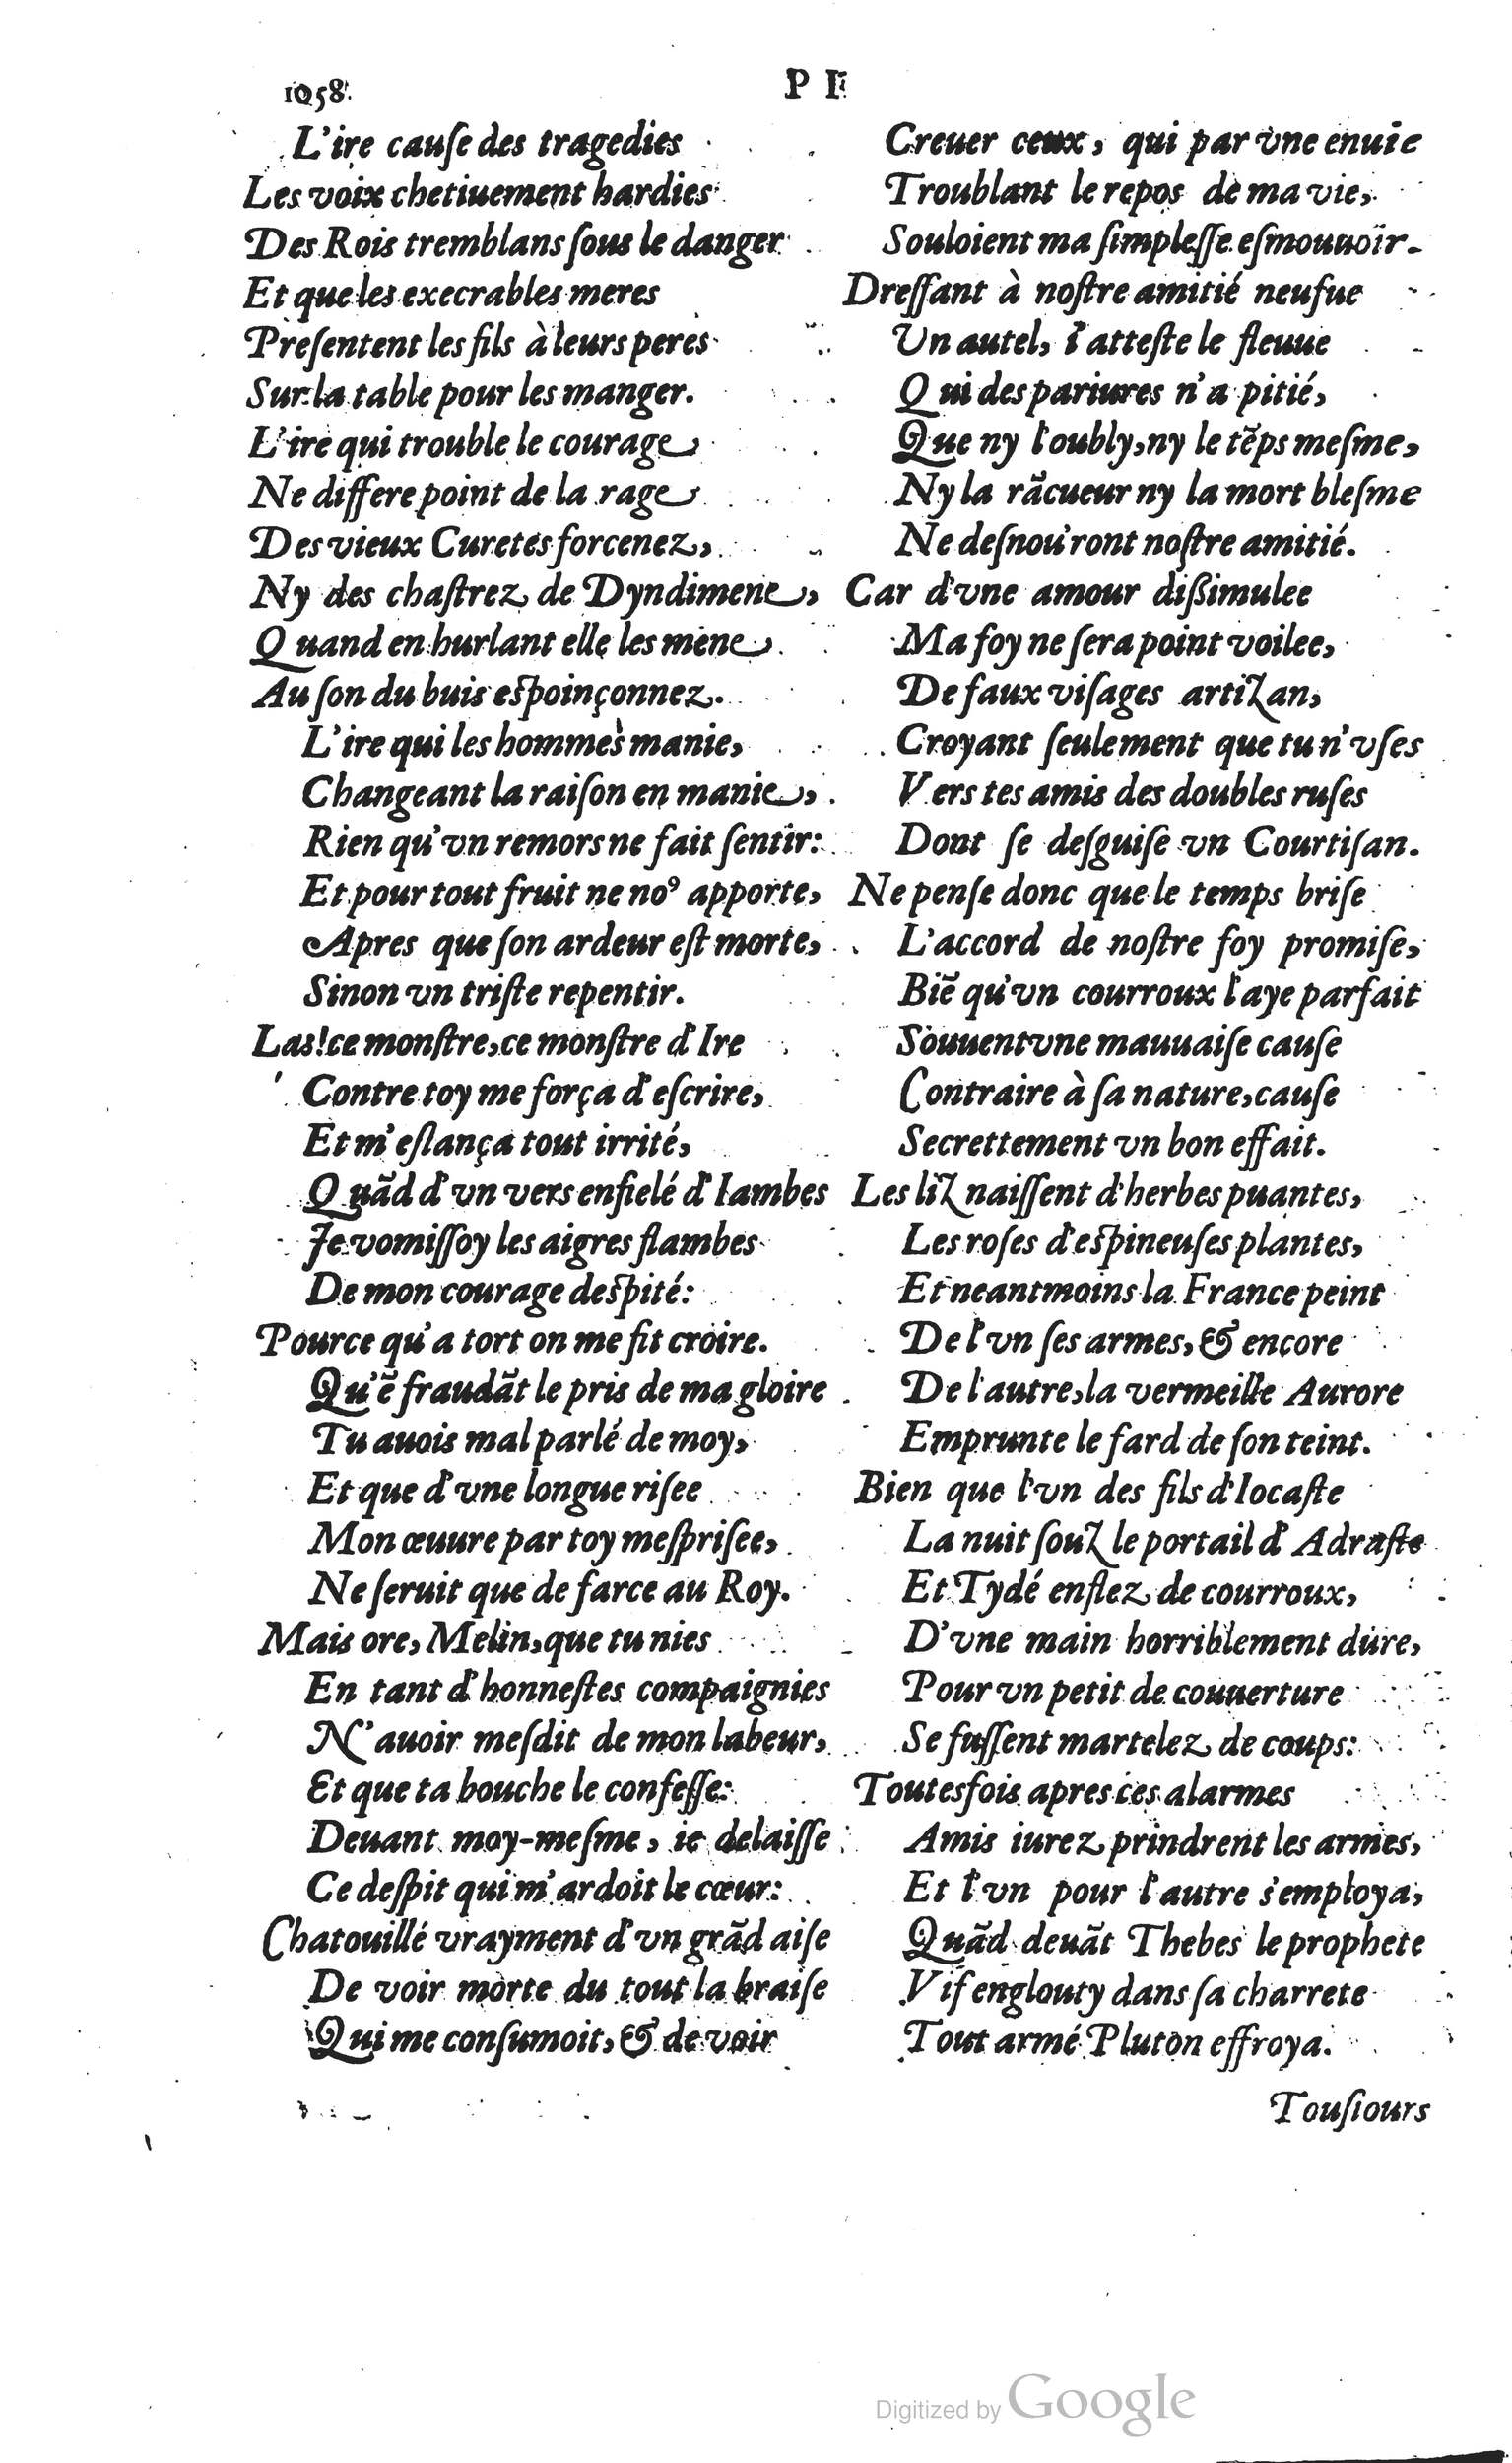 1058.
P I
L'ire cauſe des tragedies
Les voix chetiuement hardies
Des Rois tremblans ſous le danger
Et que les execrables meres
Preſentent les fils à leurs peres
Sur la table pour les manger.
L'ire qui trouble le courage
Ne differe point de la rage
Des vieux Curetes forcenez,
Ny des chaſtrez de Dyndimene,
Quand en hurlant elle les mene
Au ſon du buis eſpoinçonnez.
L'ire qui les hommes manie,
Changeant la raiſon en manie,
Rien qu'vn remors ne fait ſentir:
Et pour tout fruit ne noꝰ apporte,
Apres que ſon ardeur eſt morte,
Sinon vn triſte repentir.
Las! ce monſtre, ce monſtre d'Ire
Contre toy me força d'eſcrire,
Et m'eſlança tout irrité,
Quãd d'vn vers enfielé d'Iambes
Je vomiſſoy les aigres flambes
De mon courage deſpité:
Pource qu'a tort on me fit croire.
Qu'ẽ fraudãt le pris de ma gloire
Tu auois mal parlé de moy,
Et que d'vne longue riſee
Mon œuure par toy meſpriſee,
Ne ſeruit que de farce au Roy.
Mais ore, Melin, que tu nies
En tant d'honneſtes compaignies
N'auoir meſdit de mon labeur,
Et que ta bouche le confeſſe:
Deuant moy-meſme, ie delaiſſe
Ce deſpit qui m'ardoit le cœur:
Chatouillé vrayment d'vn grãd aiſe
De voir morte du tout la braiſe
Qui me conſumoit, & de voir
Creuer ceux, qui par vne enuie
Troublant le repos de ma vie,
Souloient ma ſimpleſſe eſmouuoir.
Dreſſant à noſtre amitié neufue
Vn autel, i'atteſte le fleuue
Qui des pariures n'a pitié,
Que ny l'oubly, ny le tẽps meſme,
Ny la rãcueur ny la mort bleſme
Ne deſnou'ront noſtre amitié.
Car d'vne amour diſſimulee
Ma foy ne ſera point voilee,
De faux viſages artizan,
Croyant ſeulement que tu n'vſes
Vers tes amis des doubles ruſes
Dont ſe deſguiſe vn Courtiſan.
Ne penſe donc que le temps briſe
L'accord de noſtre foy promiſe,
Biẽ qu'vn courroux l'aye parfait
Souuent vne mauuaiſe cauſe
Contraire à ſa nature, cauſe
Secrettement vn bon effait.
Les liz naiſſent d'herbes puantes,
Les roſes d'eſpineuſes plantes,
Et neantmoins la France peint
De l'vn ſes armes, & encore
De l'autre, la vermeille Aurore
Emprunte le fard de ſon teint.
Bien que l'vn des fils d'Iocaſte
La nuit ſouz le portail d'Adraſte
Et Tydé enflez de courroux,
D'vne main horriblement dure,
Pour vn petit de couuerture
Se fuſſent martelez de coups:
Toutesfois apres ces alarmes
Amis iurez prindrent les armes,
Et l'vn pour l'autre s'employa,
Quãd deuãt Thebes le prophete
Vif englouty dans ſa charrete
Tout armé Pluton effroya.
Touſiours
Digitized by Google